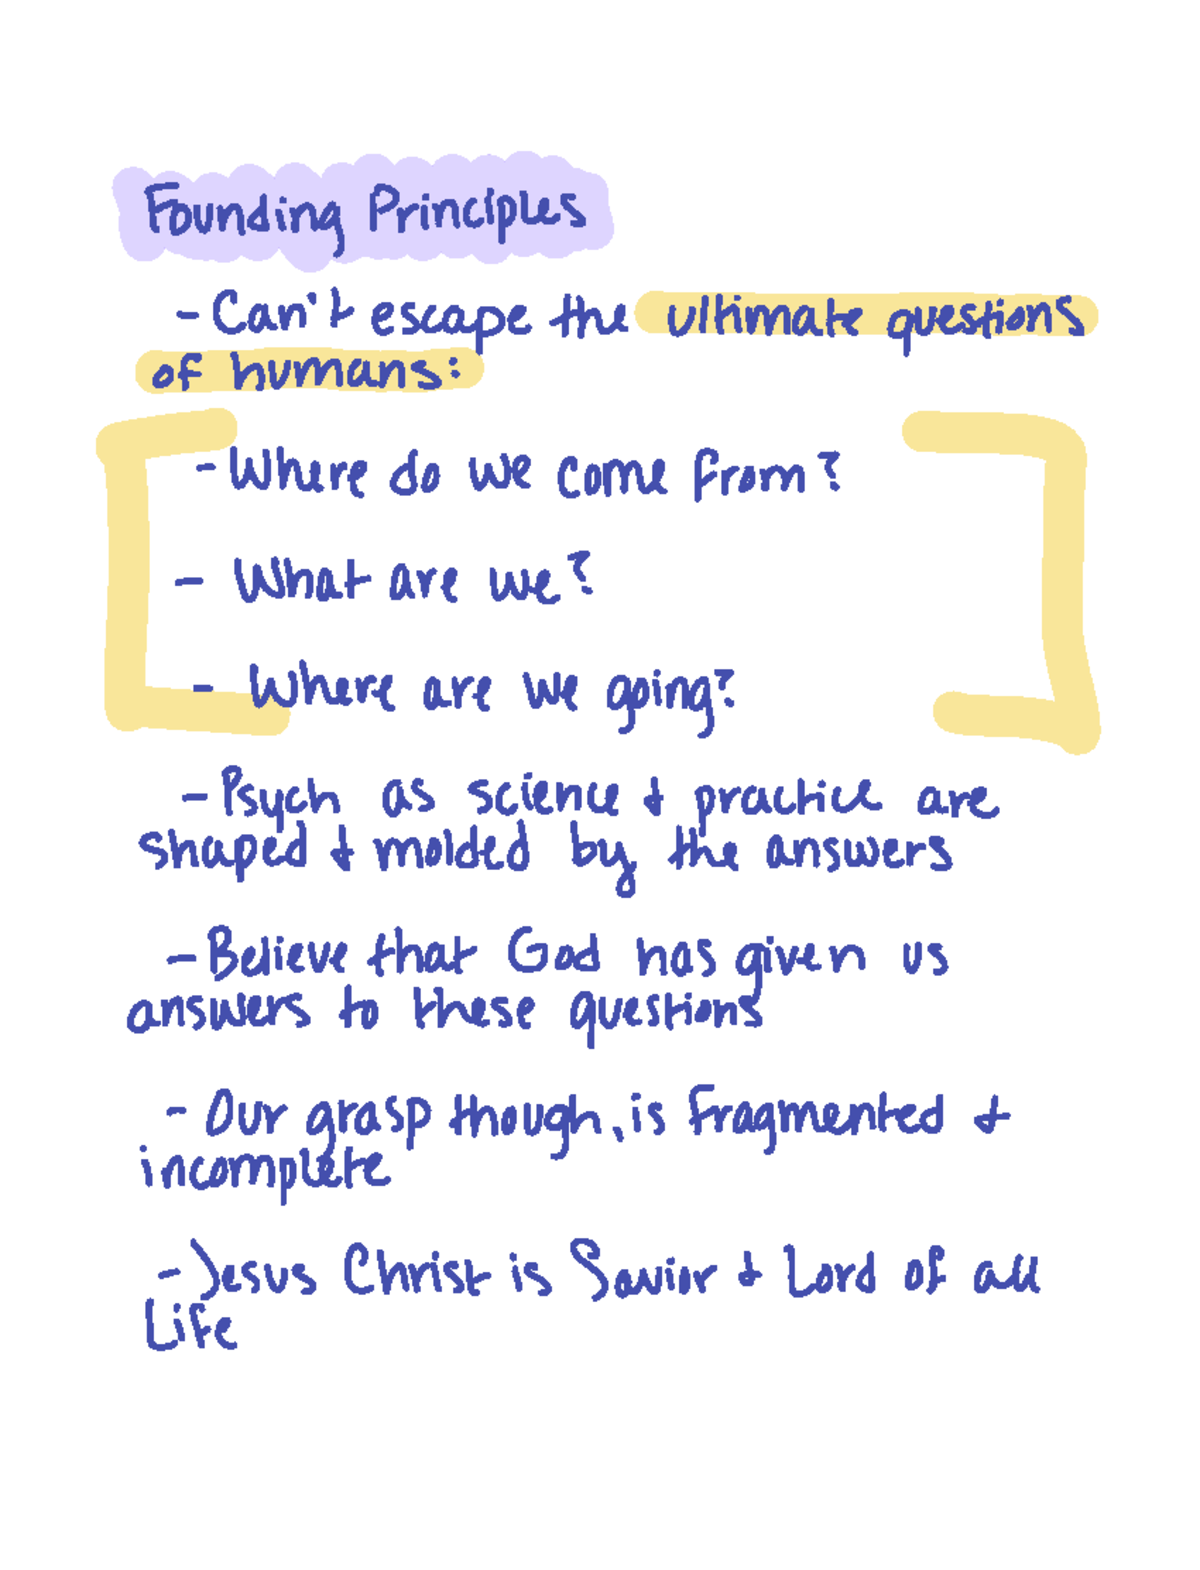 Founding Principles
- Can't escape the ultimate questions
of humans:
- Where do we come from?
- What are we?
- Where are we going?
- Psych as science & practice are
shaped & molded by the answers
- Believe that God has given us
answers to these questions
- Our grasp though, is fragmented &
incomplete
- Jesus Christ is Savior & Lord of all
Life